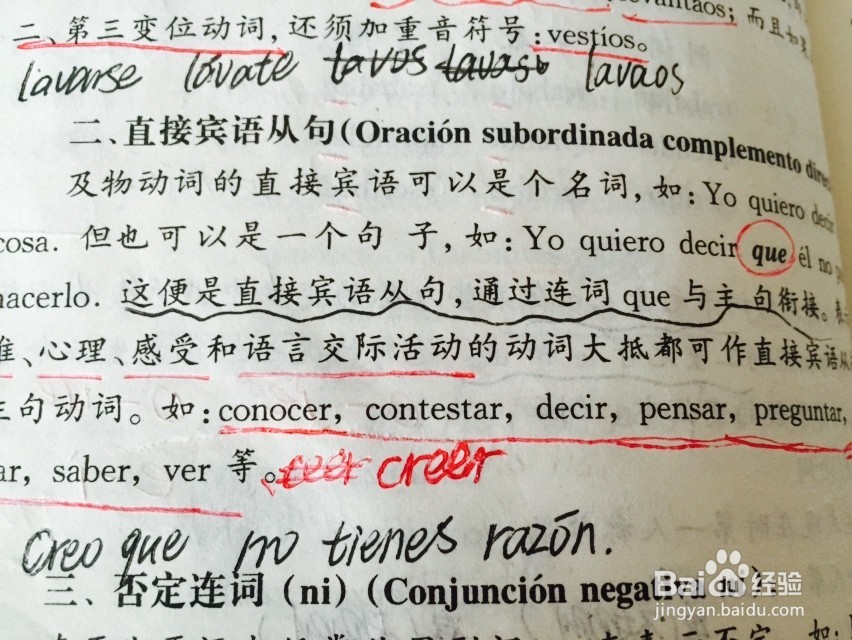 vantaos; 而且如
二、第三变位动词,还须加重音符号:vestíos。
lavarse lávate lavaos
二、直接宾语从句(Oración subordinada complemento
及物动词的直接宾语可以是个名词,如:Yo quiero decir
cosa. 但也可以是一个句 子,如:Yo quiero decir que él no
hacerlo. 这便是直接宾语从句,通过连词 que 与主句衔接。
、心理、感受和语言交际活动的动词大抵都可作直接宾语从
句动词。如:conocer, contestar, decir, pensar, preguntar,
ar, saber, ver 等。creer
Creo que no tienes razón.
三、否定连词(ni)(Conjunción negativa ni)
Baidu 经验
jingyan.baidu.com